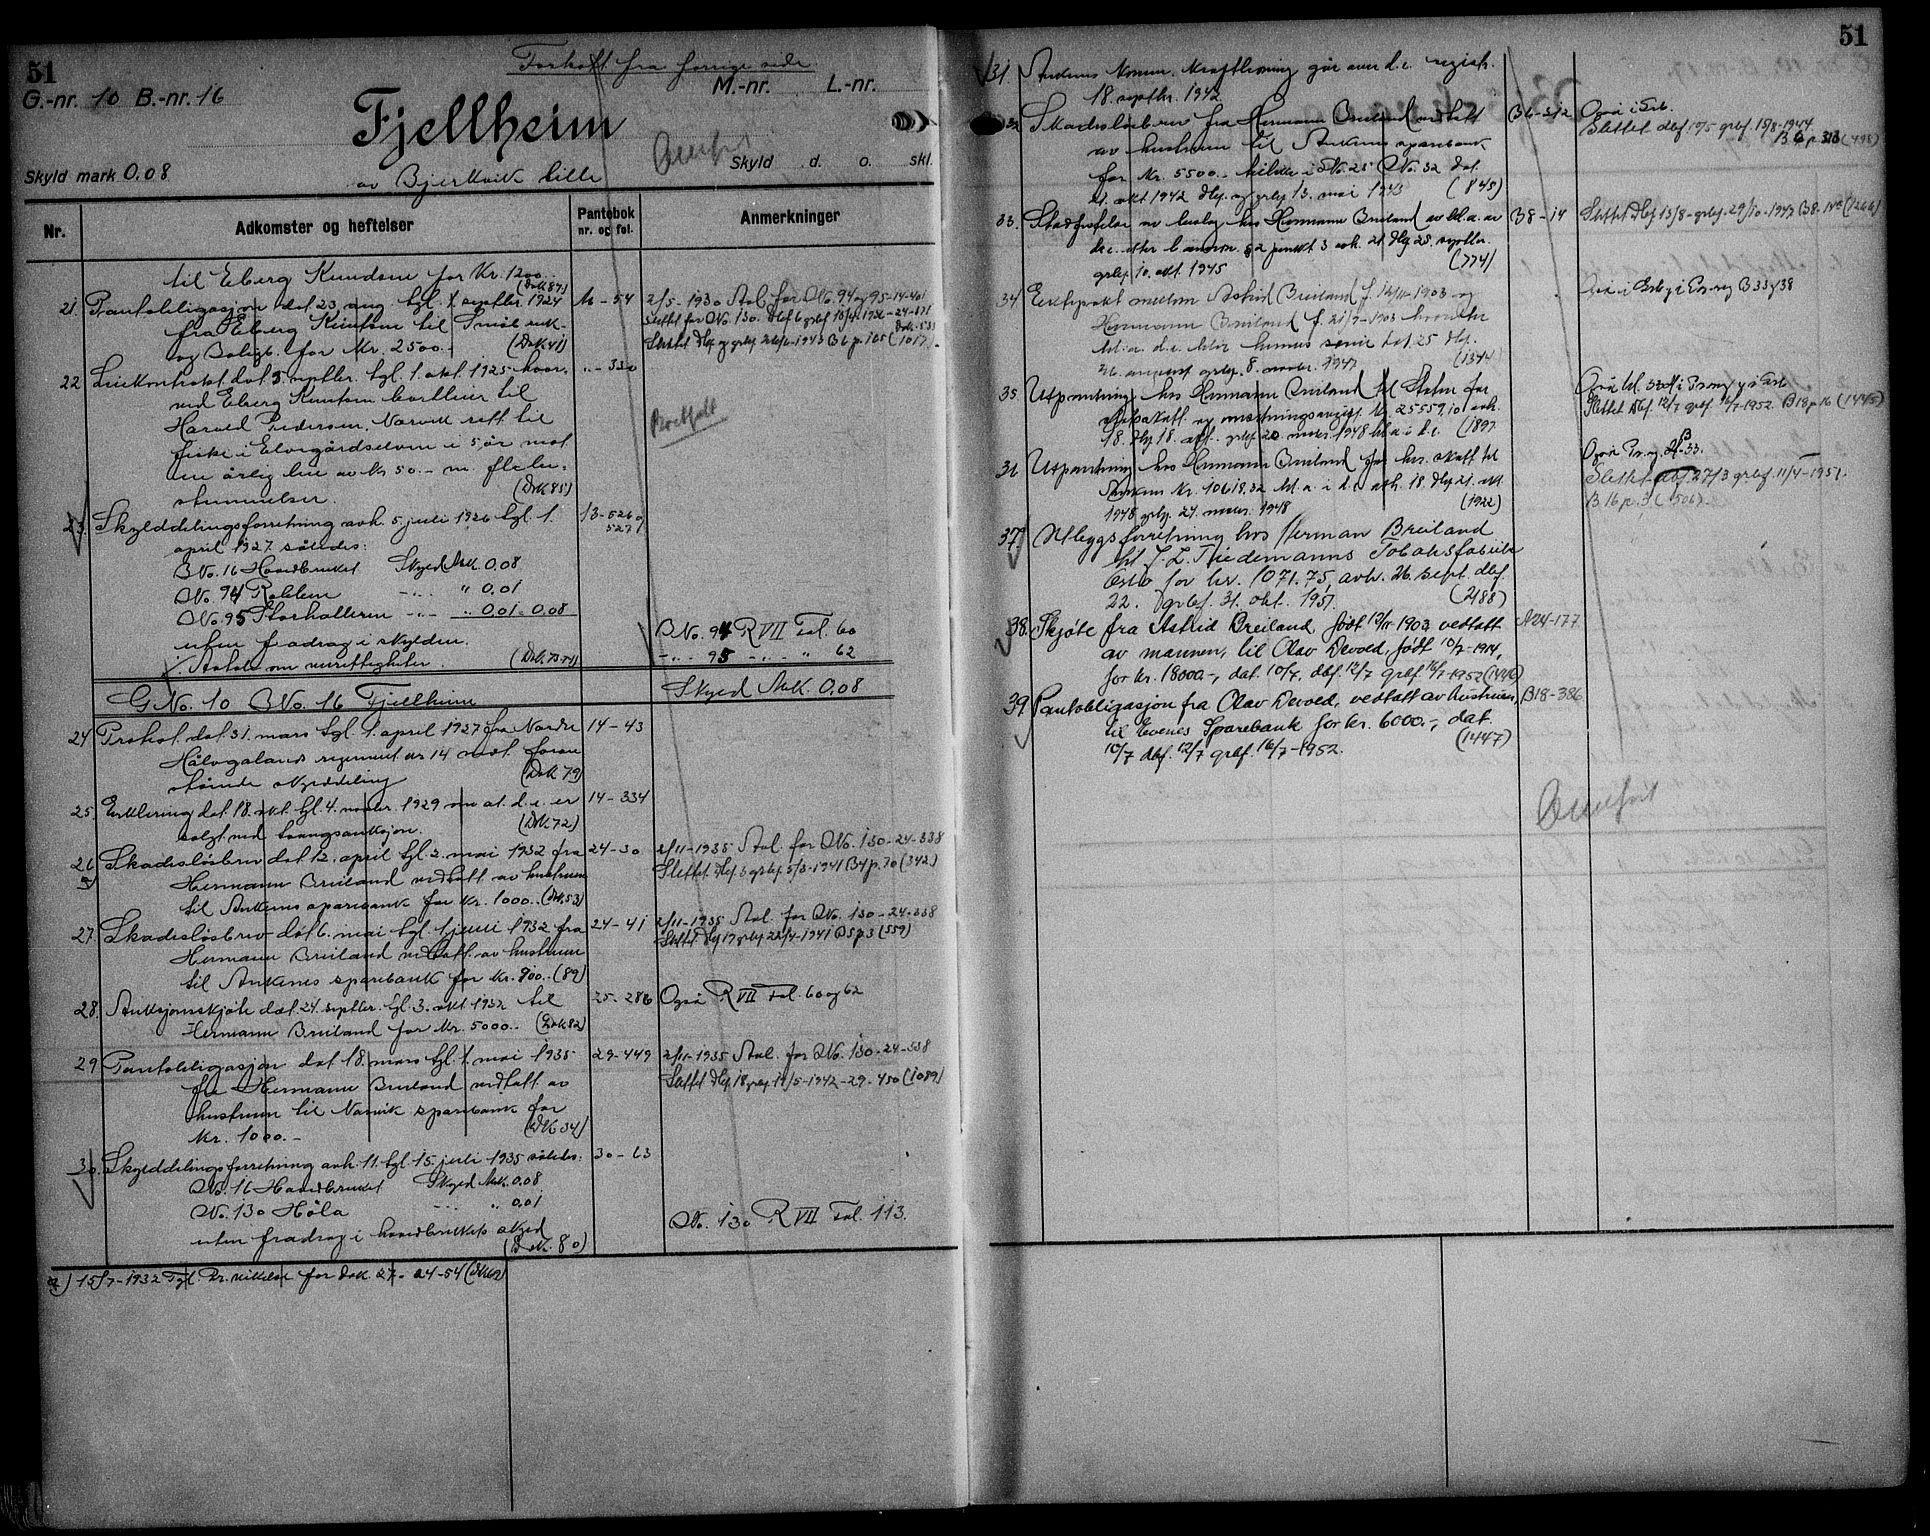 51
Forkort fra forrige side.
G.-nr. 10 B.-nr. 16 M.-nr. L.-nr.
Fjellheim
Overført
Skyld mark 0.08 av Bjerkvik lille Skyld d. o. skl.
Nr. Adkomster og heftelser Pantebok nr. og fol. Anmerkninger
til Eberg Knudsen for Kr. 1200.. (Dok 87)
21. Pantobligasjon dat 23. aug. tgl. 1. septbr. 1924 11 - 54 2/5-1930 Anl. for BNo. 94 og 95-14-401
fra Eberg Knutsen til Småbruk- Slettet for BNo. 130.
og Boligb. for Kr. 2500.- (Dok 41) Slettet 1943 B6 p. 165 (1017).
22 Leiekontrakt dat 5. septbr. tgl. 1. okt. 1925 hvor- " - 330
ved Eberg Knutsen bortleier til
Harald Pedersen, Narvik rett til
fiske i Elvegårdselven i 5 år mot Bortfalt
en årlig leie av kr 50.- m. fl. be-
stemmelser. (Dok 85)
23. Skylddelingsforretning avh. 5. juli 1926 tgl. 1. 13-526 og 527
april 1927 således:
BNo. 16 Hovedbruket Skyld Mk. 0,08
BNo. 94 -..- " 0,01
BNo. 95 Storhalleren -..- " 0,01 = 0,08
uten fradrag i skylden. BNo. 94 R VII Fol. 60
Attest om (Dok. 73-74) -..- 95 -..- " 62
G.No. 10 BNo. 16 Fjellheim Skyld Mk. 0,08
24 Protest dat 31. mars tgl. 1. april 1927 fra Nordre 14 - 43
Hålogalands regiment nr 14 mot foran
stående skylddeling (Dok 79)
25. Erklæring dat. 18. okt. tgl. 4. novbr. 1929 om at d. e. er 14 - 334
solgt ved tvangsauksjon. (Dok 72)
26. Skadesløsbrev dat 12. april tgl. 2. mai 1932 fra 24 - 30 2/11-1935 Anl. for BNo. 130-24-338
a) Hermann Breiland vedtatt av hustruen Slettet Dbf. 3 grbf 5/3-1941 B4 p. 70 (342)
til Ankenes sparebank for Kr. 1000.. (Dok 53)
27. Skadesløsbrev dat 6. mai tgl. 1. juni 1932 fra 24 - 41 2/11-1935 Anl. for BNo. 130-24-338
Hermann Breiland vedtatt av hustruen Slettet Dbf 17 grbf 22/4-1941 B5 p 3 (559)
til Ankenes sparebank for Kr. 900.. (89)
28. Auksjonsskjøte dat. 24. septbr. tgl. 3. okt. 1932 til 25 - 286 Også R VII Fol. 60 og 62
Hermann Breiland for Kr. 5000.. (Dok 82)
29 Pantobligasjon dat 18. mars tgl. 1. mai 1935 29-449 2/11-1935 Anl. for BNo. 130-24-338
fra Hermann Breiland vedtatt av Slettet Dbf 18 grbf 19/5-1942-29-450 (1089)
hustruen til Narvik sparebank for
Kr. 1000.- (Dok 34)
30. Skylddelingsforretning avh. 11. tgl. 15. juli 1935 således: 30 - 63
BNo. 16 Hovedbruket Skyld Mk. 0,08
BNo. 130 Høla -..- " 0,01 BNo. 130 R VII Fol. 113.
uten fradrag i hovedbrukets skyld
(Dok. 80)
a) 15/7-1932 Tgl. Pr. vikelse for dok 27. 24-54 (Dok 62)
51
31 Ankenes komm. Kraftledning går over d. e. regist.
18. septbr. 1942
32 Skadesløsbrev fra Hermann Breiland vedtatt B6-312 Også i
av hustruen til Ankenes sparebank Slettet dbf 10/5 grbf. 15/8-1944 B 6 p 313 (498)
for Kr. 5500.- No. 25 No. 32 dat.
21. okt 1942 Dbf. og grbf 13. mai 1943 (845)
33. av hos Hermann Breiland av bl. a. B8-14 Slettet Dbf 13/8- grbf. 29/10-1947 B8 (1266)
d. e. etter § 2 punkt 3 avh. 21. Dbf 28. septbr.
grbf. 10. okt. 1945 (774)
34 Ektepakt mellem Astrid Breiland f. 1903 og Også i B 33 38
Hermann Breiland f. 21/7-1903 hvoretter
bl. a. d. e. blir hennes særeie dat 25 Dbf.
26. august grbf. 8. novbr. 1947 (1344)
35. Utpantning hos Hermann Breiland til Staten for Også bl.
og omsetningsavgift Kr. 25559,10 avh. Slettet Dbf. 12/7 grbf. 16/7-1952. B18 p 16 (1445)
18. Dbf 18. okt. grbf. 20. novbr. 1948 bl. a. i d. e. (1897
36 Utpantning hos Hermann Breiland for kr. skatt til Også
Ankenes Kr. 10618,32 bl. a. i d. e. avh. 18. Dbf 21. okt. Slettet dbf 27/3 grbf. 11/4-1951.
1948 grbf. 24. novbr. 1948 (1922) B 16 p. 3 (506)
37. Utleggsforretning hos Herman Breiland
til J. L. Tiedemanns Tobaksfabrik
Oslo for kr. 1071.75 avh. 26. sept. dbf.
22. grbf. 31. okt. 1951. (2188)
38. Skjøte fra Astrid Breiland, født 1903 vedtatt A24-177
av mannen, til Olav Devold, født 10/2-1914,
for kr. 18000.-, dat. 10/7, dbf. 12/7 grbf 16/7-1952 (1446)
39. Pantobligasjon fra Olav Devold, vedtatt av hustruen, B18-386
til Evenes Sparebank for kr. 6000.-, dat.
10/7 dbf. 12/7 grbf. 16/7-1952. (1447)
Overført